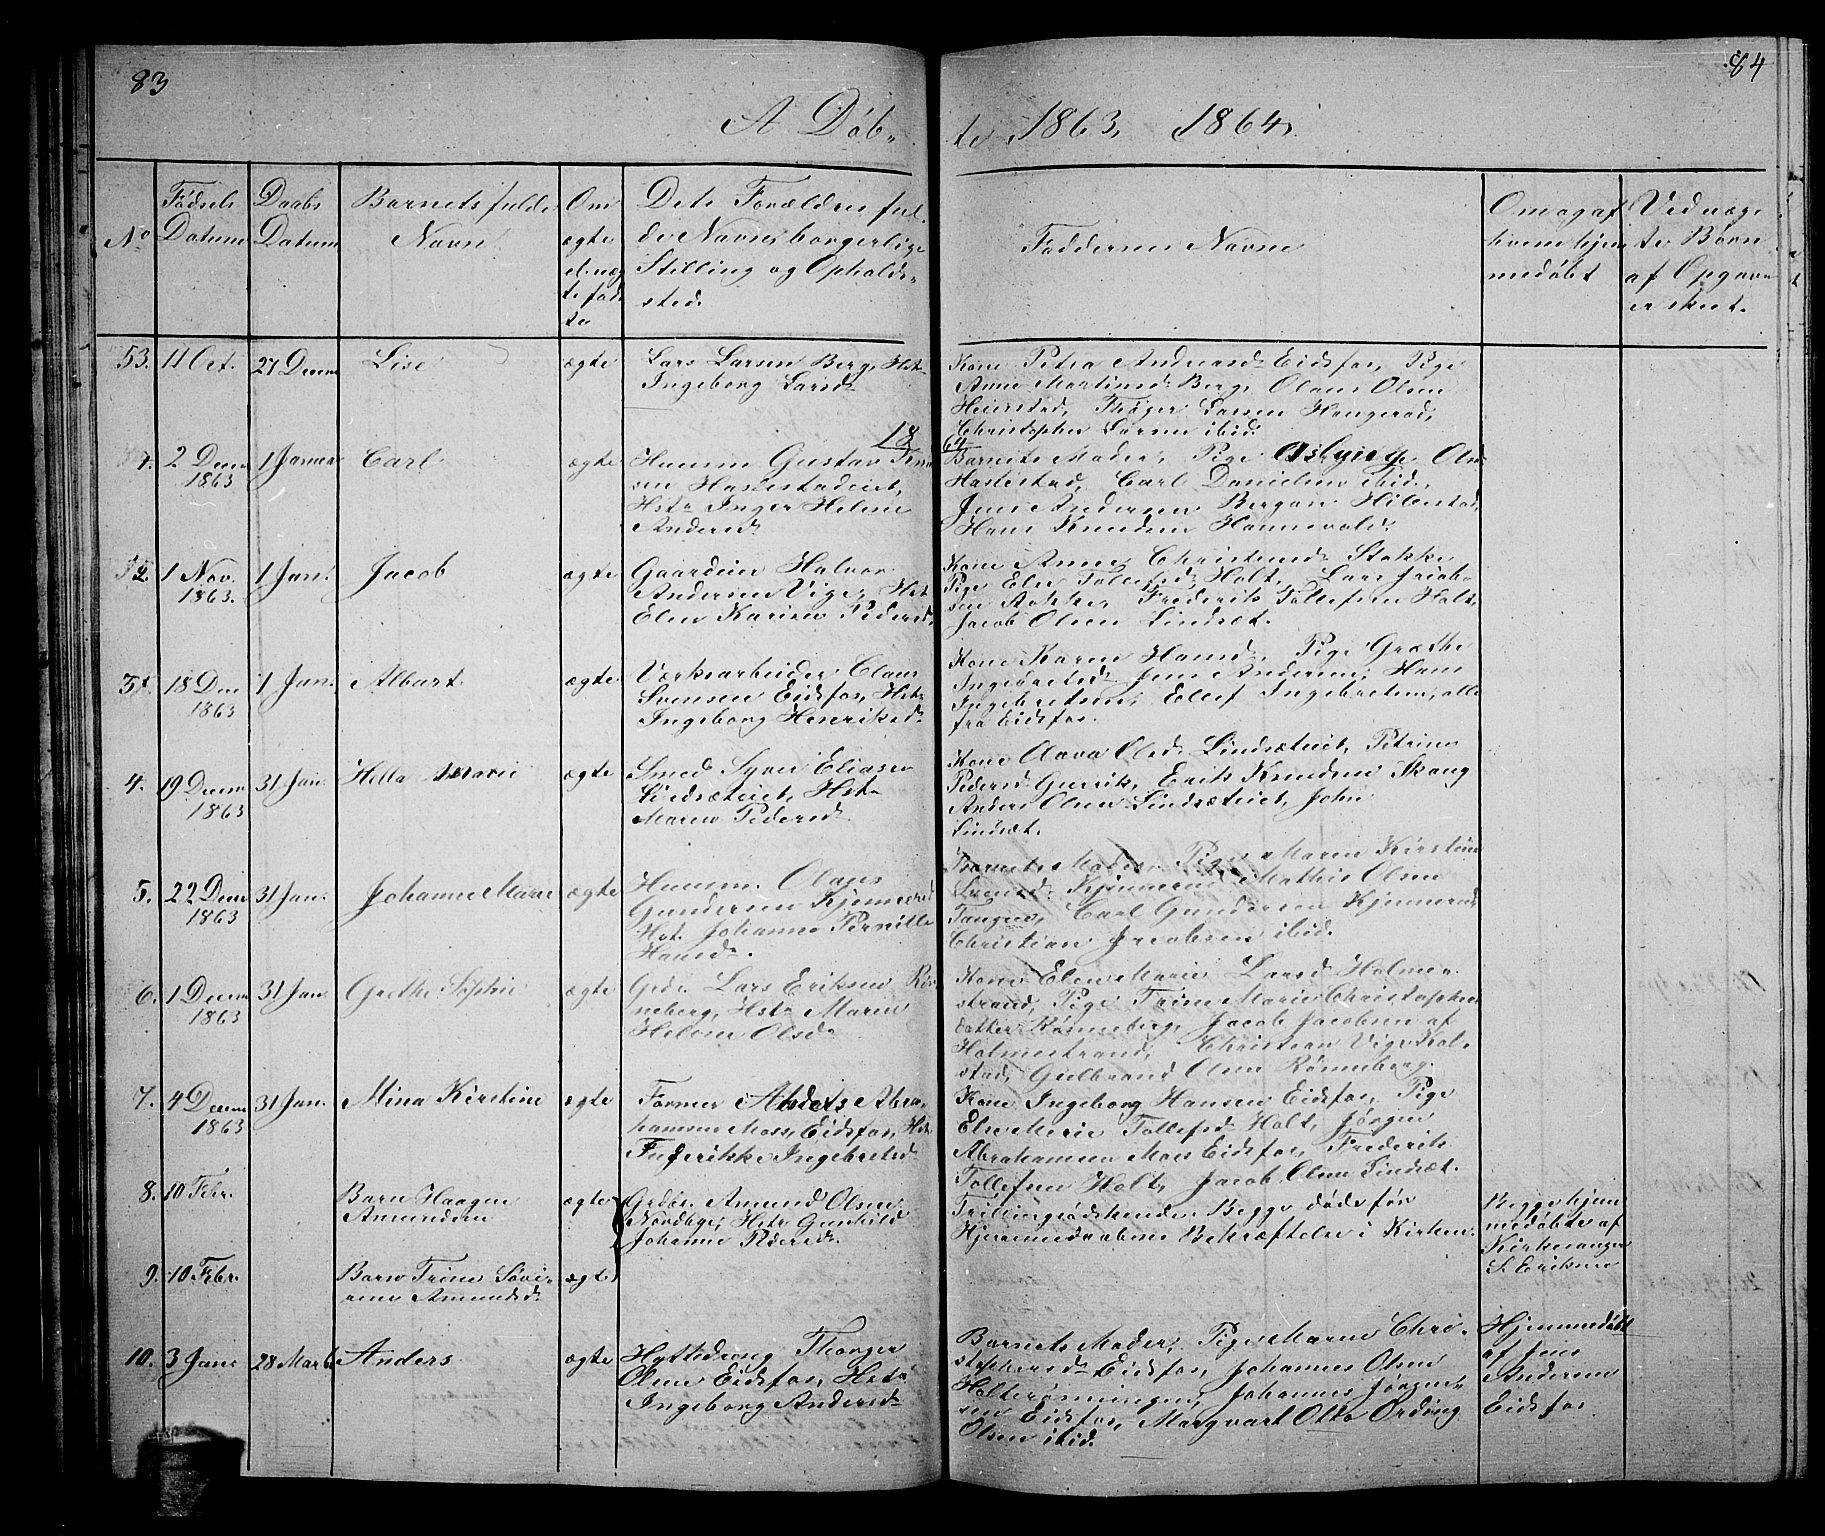 83
84
A Døb„
te 1863, 1864.
No
Fødsels Datum
Daabs Datum
Barnets fulde Navn
Om ægte el. uæg te føds
Dets Forældres ful„
de Navn, borgerlige
Stilling og Opholds„
sted.
Faddernes Navne
Om og af
hvem hjem
medøbt
Ved uæg„
te Børn
af Opgaven
er skeet.
53. 11 Oct. 27 Decem Lise ægte
Lars Larsen Berg, Hst.
Ingeborg Larsd.
Kone Petra Andreasd. Eidsfos, Pige
Anne Martinsd. Berg, Olaus Olsen
Heierstad, Thøger Larsen Haugerød,
Christopher Larsen ibid.
1864
2 Decem 1863 1 Januar Carl ægte
Huusm. Gustav Knud
sen Hastestadeiet,
Hstr. Inger Helene
Andersd.
Barnets Moder, Pige Asbjørg Ols
Hastestad, Carl Danielsen ibid.,
Jens Andersen Bergan Hillestad,
Hans Knudsen Hannevold.
2. 1 Nov. 1863. 1 Jan. Jacob ægte
Gaardeier Halvor
Andersen Viger, Hst.
Elen Karine Pedersd.
Kone Anne Christensd. Stokke,
Pige Else Tollefsd. Holt, Lars Jacob„
sen Stokke, Frederik Tollefsen Holt,
Jacob Olsen Lindsæt.
3. 18 Dec 1863 1 Jan. Albert ægte
Værksarbeider Claus
Svensen Eidsfos, Hstr.
Ingeborg Henriksd.
Kone Karen Hansd., Pige Grethe
Ingebretsd., Jens Andersen, Hans
Ingebretsen, Ellef Ingebretsen, alle
fra Eidsfos.
4. 19 Decem 1863 31 Jan. Hella Marie ægte
Smed Syver Eliasen
Lindsæteiet, Hstr.
Maren Pedersd.
Kone Aava Olsd. Lindsæteiet, Petrine
Pedersd. Erik Knudsen Skaug
Anders Olsen Lindsæteiet, John
Lindsæt.
5. 22 Decem 1863 31 Jan. Johanne Marie ægte
Huusm. Olaus
Gundersen Kjennerud
Hst. Johanne Pernille
Hansd.
Barnets Moder, Pige Maren Kirstine
Svensd. Kjennerud, Mathis Olsen
Tangen, Carl Gundersen Kjennerud,
Christian Jacobsen ibid.
6. 1 Decem 1863 31 Jan Grethe Sophie ægte
Gdr. Lars Eriksen Røn
neberg, Hstr. Maren
Helene Olsd.
Kone Elen Marie Larsd. Holme„
strand, Pige Trine Marie Christophers
datter Rønneberg, Jacob Jacobsen af
Holmestrand, Christian Viger Hal„
stad, Gulbrand Olsen Rønneberg.
7. 4 Decem 1863 31 Jan. Mina Kirstine ægte
Former Anders Abra„
hamsen Moss, Eidsfos, Hst.
Frederikke Ingebretsd.
Kone Ingeborg Hansen Eidsfos, Pige
Else Marie Tollefsd. Holt, Jørgen
Abrahamsen Moss Eidsfos, Frederik
Tollefsen Holt, Jacob Olsen Lindsæt.
8. 10 Febr. Barn Haagen
Amundsen ægte
Grdbr. Amund Olsen
Nordbye, Hstr. Gunhild
Johanne Pedersd.
Trillingsødskende. Begge døde før
Hjemmedaabens Bekræftelse i Kirken.
Begge hjem
medøbte af
Kirkesanger
S. Eriksen
9. 10 Febr. Barn Trine Seve„
rine Amundsd. ægte
10. 3 Janr. 28 Marts Anders ægte
Hyttedreng Thorger
Olsen Eidsfos, Hstr.
Ingeborg Andersd.
Barnets Moder, Pige Maren Chri„
stophersd. Eidsfos, Johannes Olsen
Holterønningen, Johannes Jørgen„
sen Eidsfos, Marqvart Otto Ording
Olsen ibid.
Hjemmedøbt
af Jens
Andersen
Eidsfos